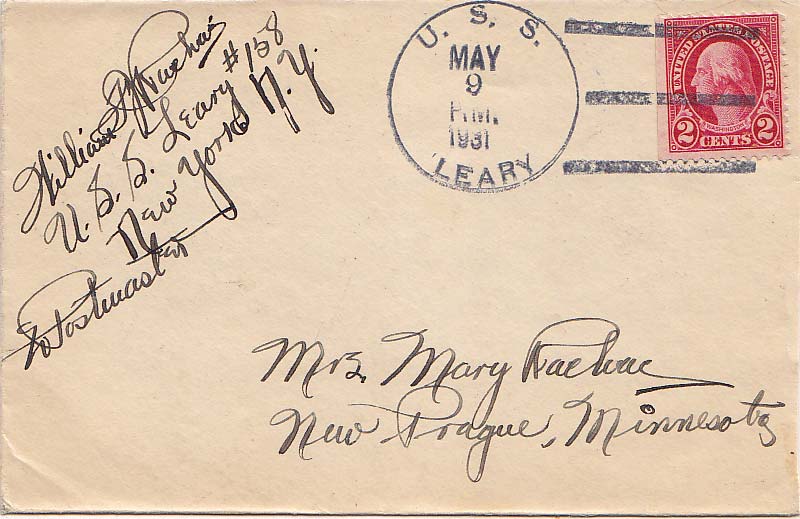 William J. Kachac
U.S.S. Leary #158
New York N.Y.
c/o Postmaster
U. S. S.
MAY
9
P.M.
1931
LEARY
UNITED STATES POSTAGE
WASHINGTON
2 CENTS 2
Mrs. Mary Kachac
New Prague, Minnesota